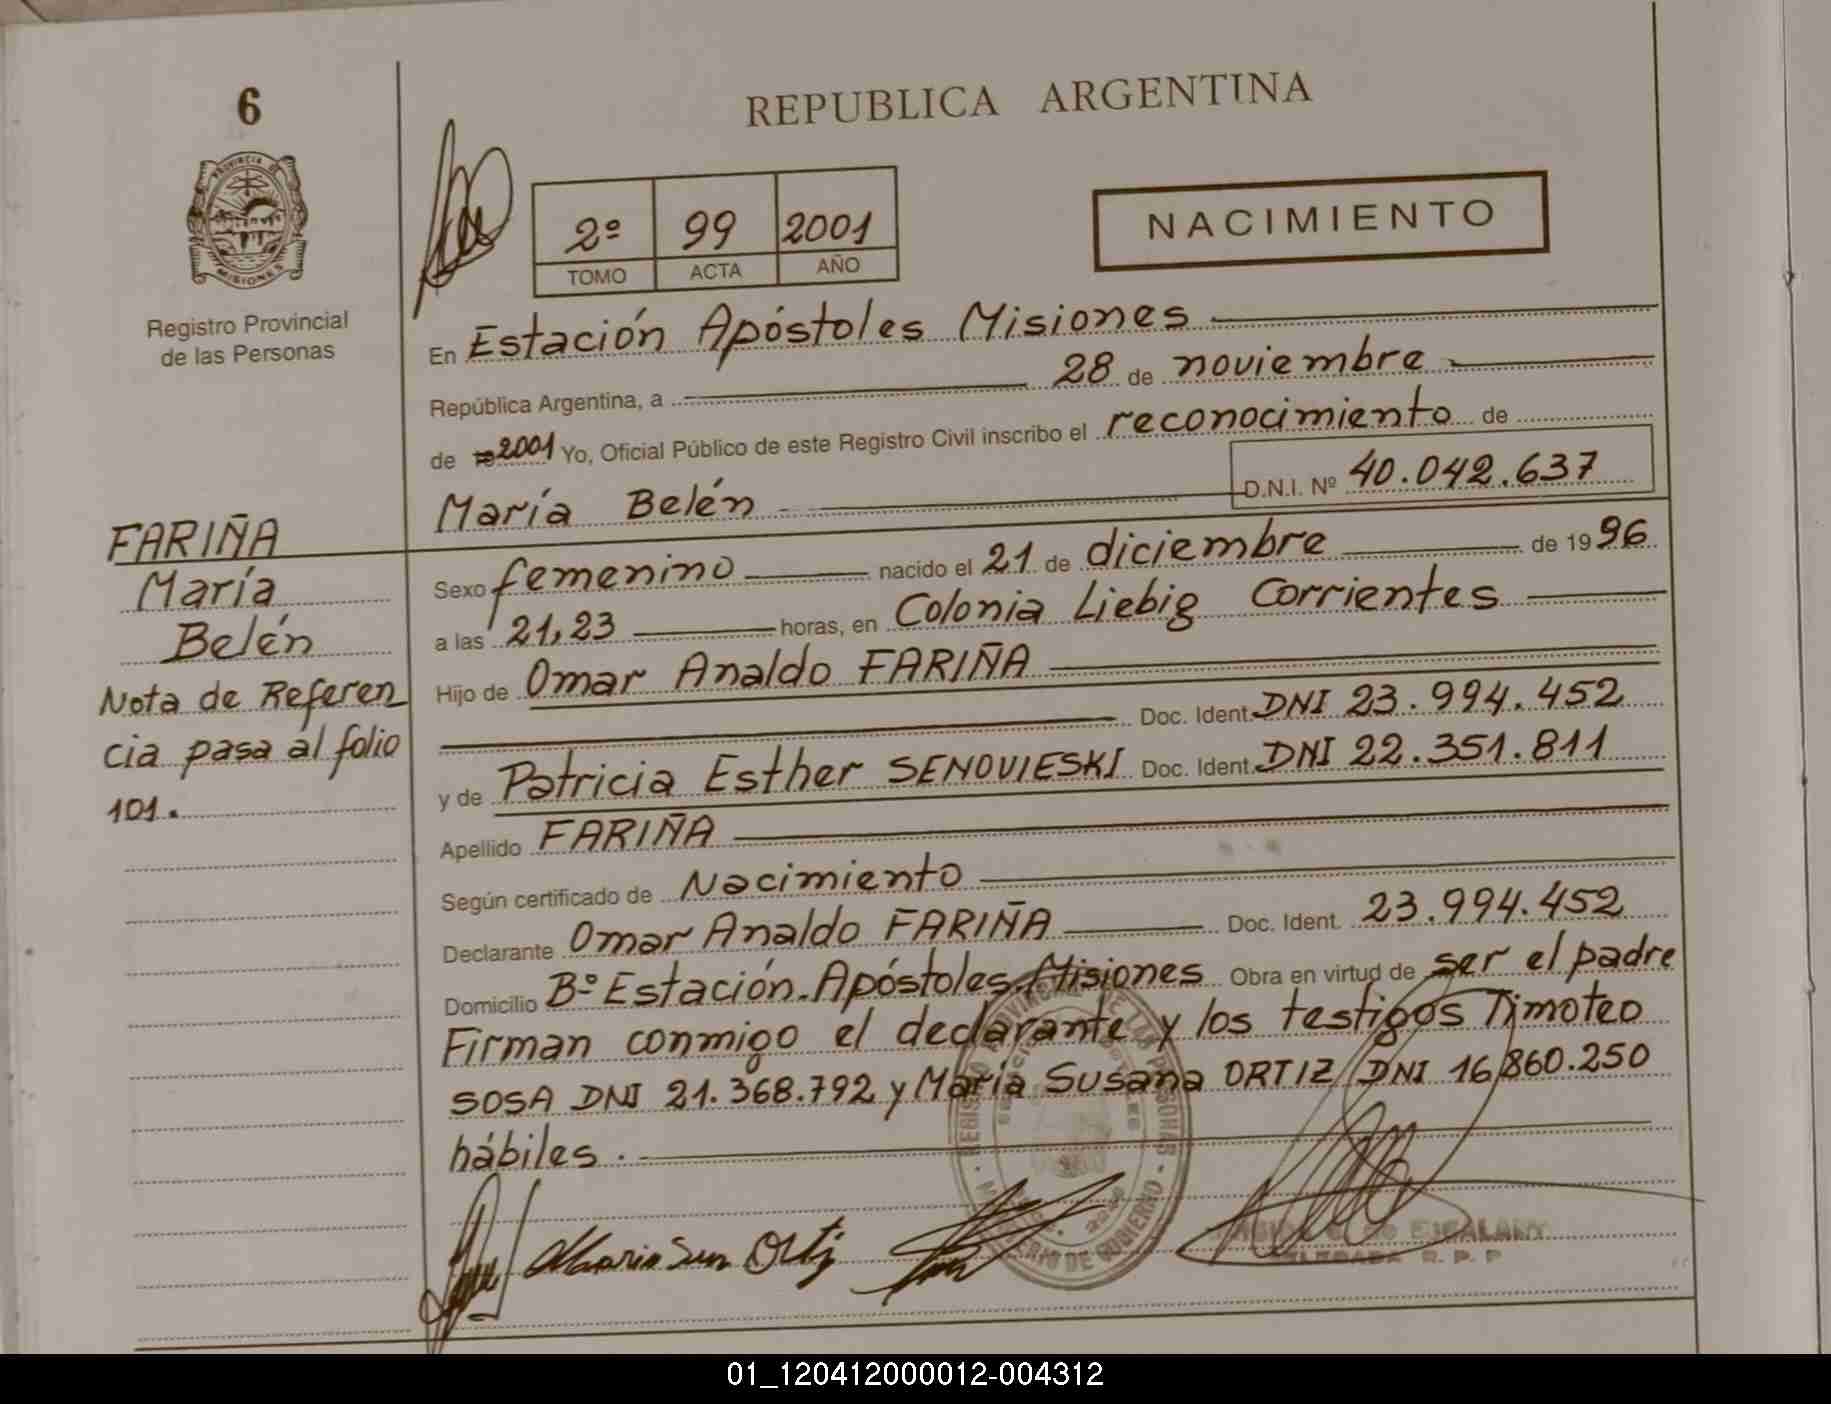 6
REPUBLICA ARGENTINA
PROVINCIA DE
MISIONES
Registro Provincial
de las Personas
2º 99 2001
TOMO ACTA AÑO
NACIMIENTO
En Estación Apóstoles Misiones
República Argentina, a 28 de noviembre
de 2001 Yo, Oficial Público de este Registro Civil inscribo el reconocimiento de
María Belén D.N.I. Nº 40.042.637
FARIÑA
María
Belén
Nota de Referen
cia pasa al folio
101.
Sexo femenino nacido el 21 de diciembre de 1996
a las 21,23 horas, en Colonia Liebig Corrientes
Hijo de Omar Analdo FARIÑA
Doc. Ident. DNI 23.994.452
y de Patricia Esther SENOVIESKI Doc. Ident. DNI 22.351.811
Apellido FARIÑA
Según certificado de Nacimiento
Declarante Omar Analdo FARIÑA Doc. Ident. 23.994.452
Domicilio Bº Estación Apóstoles Misiones Obra en virtud de ser el padre
Firman conmigo el declarante y los testigos Timoteo
SOSA DNI 21.368.792 y María Susana ORTIZ DNI 16.860.250
hábiles.
Maria Sun Ortiz
DELEGADA R.P.P
01_120412000012-004312